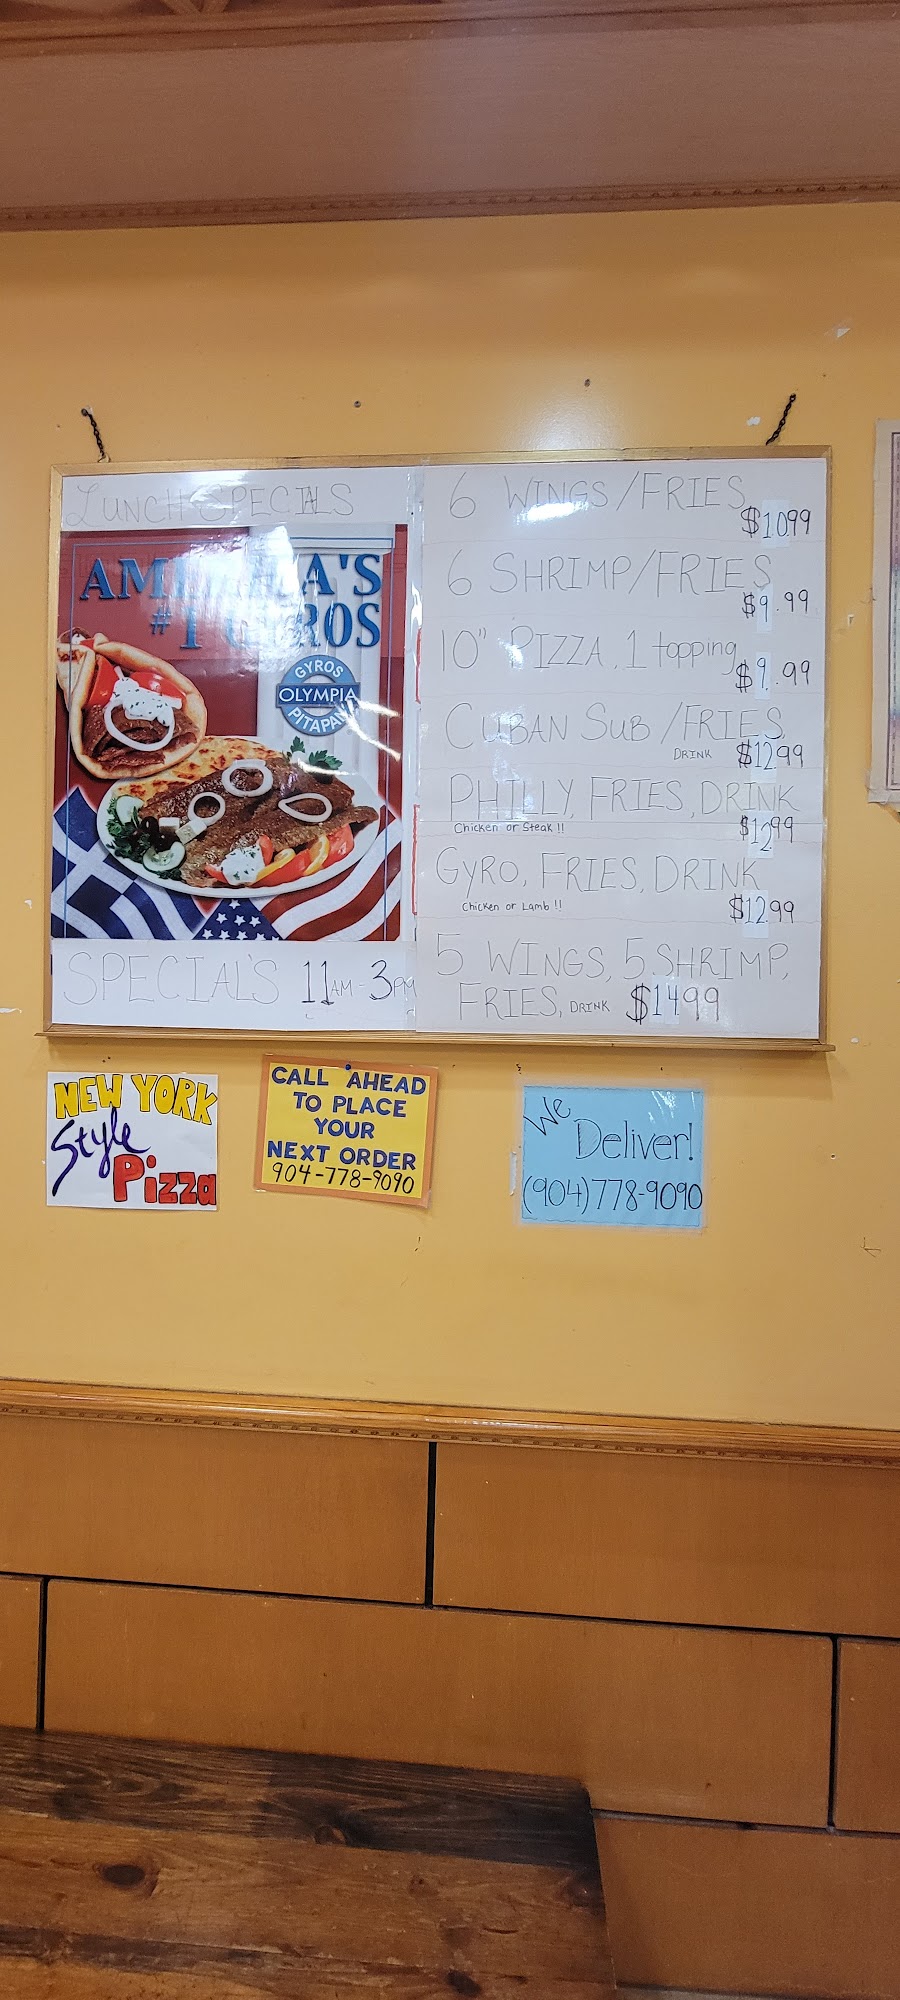 LUNCH SPECIALS
AMERICA'S
#1 GYROS
GYROS
OLYMPIA
PITAPAN
SPECIAL'S 11AM-3PM
6 WINGS/FRIES
$10.99
6 SHRIMP/FRIES
$9.99
10" PIZZA, 1 topping
$9.99
CUBAN SUB/FRIES,
DRINK $12.99
PHILLY, FRIES, DRINK
Chicken or Steak!! $12.99
GYRO, FRIES, DRINK
Chicken or Lamb!! $12.99
5 WINGS, 5 SHRIMP,
FRIES, DRINK $14.99
NEW YORK
Style
Pizza
CALL AHEAD
TO PLACE
YOUR
NEXT ORDER
904-778-9090
We
Deliver!
(904)778-9090